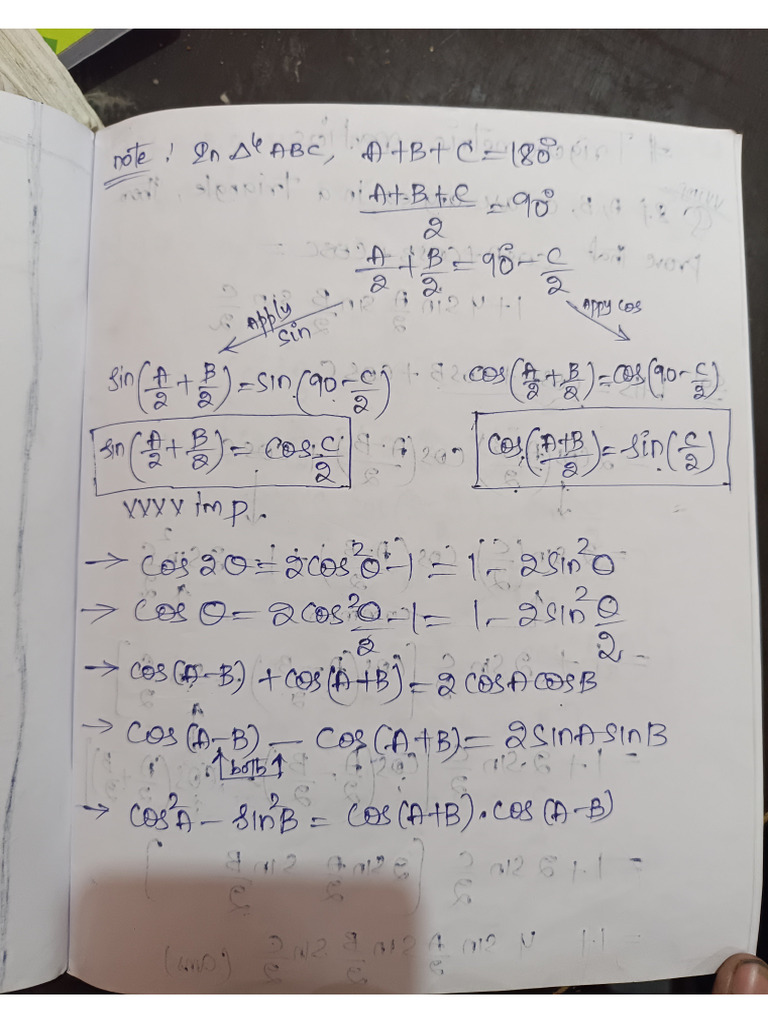 note! In Δle ABC, A+B+C=180°
(A+B+C)/2 = 90°
A/2 + B/2 = 90° - C/2
Apply sin
Appy cos
sin(A/2 + B/2) = sin(90 - C/2)
cos(A/2 + B/2) = cos(90 - C/2)
sin(A/2 + B/2) = cos C/2
cos(A+B/2) = sin(C/2)
VVVV imp.
→ cos2θ = 2cos²θ - 1 = 1 - 2sin²θ
→ cosθ = 2cos²θ/2 - 1 = 1 - 2sin²θ/2
→ cos(A-B) + cos(A+B) = 2cosAcosB
→ cos(A-B) - cos(A+B) = 2sinAsinB
→ cos²A - sin²B = cos(A+B).cos(A-B)